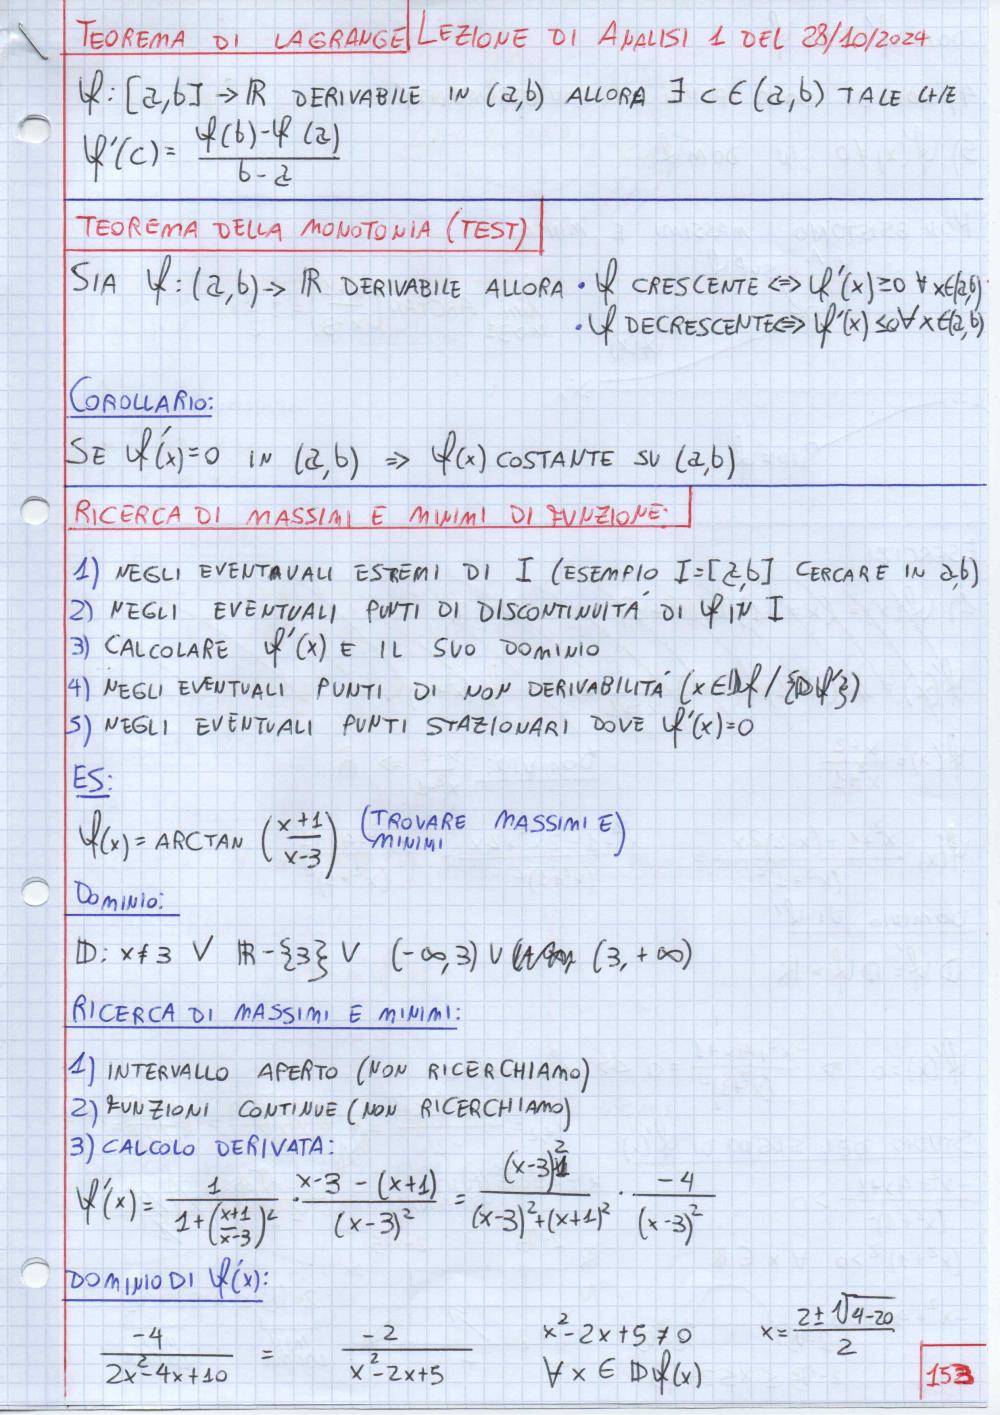 TEOREMA DI LAGRANGE LEZIONE DI ANALISI 1 DEL 28/10/2024
φ: [a,b] → ℝ DERIVABILE IN (a,b) ALLORA ∃ c ∈ (a,b) TALE CHE
φ'(c) = (φ(b)-φ(a))/(b-a)
TEOREMA DELLA MONOTONIA (TEST)
SIA φ: (a,b) → ℝ DERIVABILE ALLORA • φ CRESCENTE ⇔ φ'(x) ≥ 0 ∀ x∈(a,b)
• φ DECRESCENTE ⇔ φ'(x) ≤ 0 ∀ x ∈ (a,b)
COROLLARIO:
SE φ'(x)=0 IN (a,b) ⇒ φ(x) COSTANTE SU (a,b)
RICERCA DI MASSIMI E MINIMI DI FUNZIONE:
1) NEGLI EVENTAUALI ESTREMI DI I (ESEMPIO I=[a,b] CERCARE IN a,b)
2) NEGLI EVENTUALI PUNTI DI DISCONTINUITÁ DI φ IN I
3) CALCOLARE φ'(x) E IL SUO DOMINIO
4) NEGLI EVENTUALI PUNTI DI NON DERIVABILITÁ (x ∈ 𝔻φ / {𝔻φ'})
5) NEGLI EVENTUALI PUNTI STAZIONARI DOVE φ'(x)=0
ES:
φ(x) = ARCTAN ((x+1)/(x-3)) (TROVARE MASSIMI E MINIMI)
DOMINIO:
𝔻: x≠3 ∨ ℝ-{3} ∨ (-∞,3) ∪ (3,+∞)
RICERCA DI MASSIMI E MINIMI:
1) INTERVALLO APERTO (NON RICERCHIAMO)
2) FUNZIONI CONTINUE (NON RICERCHIAMO)
3) CALCOLO DERIVATA:
φ'(x) = 1/(1+((x+1)/(x-3))²) · (x-3-(x+1))/(x-3)² = (x-3)²/((x-3)²+(x+1)²) · -4/(x-3)²
DOMINIO DI φ'(x):
-4/(2x²-4x+10) = -2/(x²-2x+5) x²-2x+5 ≠ 0 x = (2±√(4-20))/2
∀ x ∈ 𝔻φ(x)
153